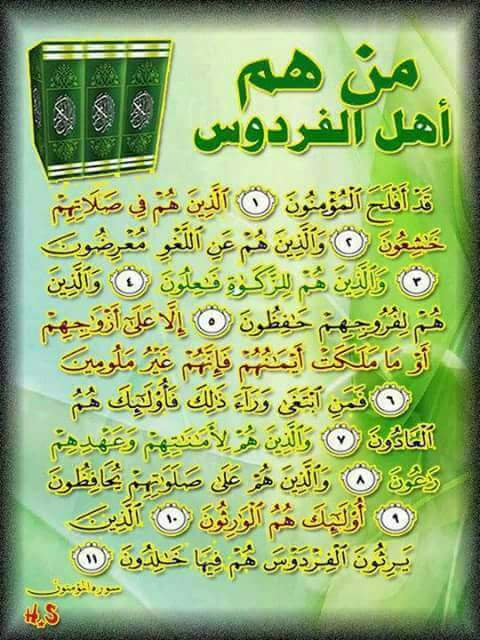 من هم
أهل الفردوس
قَدْ أَفْلَحَ الْمُؤْمِنُونَ ١ الَّذِينَ هُمْ فِي صَلَاتِهِمْ
خَاشِعُونَ ٢ وَالَّذِينَ هُمْ عَنِ اللَّغْوِ مُعْرِضُونَ
٣ وَالَّذِينَ هُمْ لِلزَّكَوٰةِ فَاعِلُونَ ٤ وَالَّذِينَ
هُمْ لِفُرُوجِهِمْ حَافِظُونَ ٥ إِلَّا عَلَىٰ أَزْوَاجِهِمْ
أَوْ مَا مَلَكَتْ أَيْمَانُهُمْ فَإِنَّهُمْ غَيْرُ مَلُومِينَ
٦ فَمَنِ ابْتَغَىٰ وَرَاءَ ذَٰلِكَ فَأُولَٰئِكَ هُمُ
الْعَادُونَ ٧ وَالَّذِينَ هُمْ لِأَمَانَاتِهِمْ وَعَهْدِهِمْ
رَاعُونَ ٨ وَالَّذِينَ هُمْ عَلَىٰ صَلَوَاتِهِمْ يُحَافِظُونَ
٩ أُولَٰئِكَ هُمُ الْوَارِثُونَ ١٠ الَّذِينَ
يَرِثُونَ الْفِرْدَوْسَ هُمْ فِيهَا خَالِدُونَ ١١
سورة المؤمنون
H.S